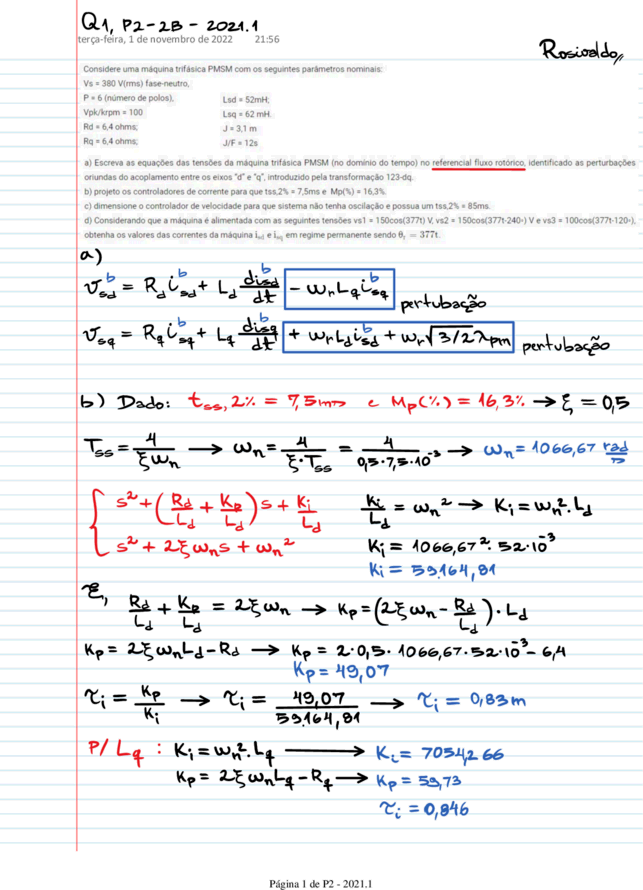 Q1, P2-2B - 2021.1
terça-feira, 1 de novembro de 2022 21:56
Rosivaldo,,
Considere uma máquina trifásica PMSM com os seguintes parâmetros nominais:
Vs = 380 V(rms) fase-neutro,
P = 6 (número de polos), Lsd = 52mH;
Vpk/krpm = 100 Lsq = 62 mH.
Rd = 6,4 ohms; J = 3,1 m
Rq = 6,4 ohms; J/F = 12s
a) Escreva as equações das tensões da máquina trifásica PMSM (no domínio do tempo) no referencial fluxo rotórico, identificado as perturbações
oriundas do acoplamento entre os eixos "d" e "q", introduzido pela transformação 123-dq.
b) projeto os controladores de corrente para que tss,2% = 7,5ms e Mp(%) = 16,3%.
c) dimensione o controlador de velocidade para que sistema não tenha oscilação e possua um tss,2% = 85ms.
d) Considerando que a máquina é alimentada com as seguintes tensões vs1 = 150cos(377t) V, vs2 = 150cos(377t-240◦) V e vs3 = 100cos(377t-120◦),
obtenha os valores das correntes da máquina i_sd e i_sq em regime permanente sendo θ_r = 377t.
a)
v_sd^b = R_d i_sd^b + L_d di_sd^b/dt - ω_r L_q i_sq^b pertubação
v_sq^b = R_q i_sq^b + L_q di_sq^b/dt + ω_r L_d i_sd^b + ω_r √(3/2) λ_pm pertubação
b) Dado: t_ss, 2% = 7,5ms e Mp(%) = 16,3% → ξ = 0,5
T_ss = 4/(ξω_n) → ω_n = 4/(ξ·T_ss) = 4/(0,5·7,5·10^-3) → ω_n = 1066,67 rad/s
s² + (R_d/L_d + K_p/L_d)s + K_i/L_d K_i/L_d = ω_n² → K_i = ω_n².L_d
s² + 2ξω_n s + ω_n² K_i = 1066,67². 52·10^-3
K_i = 59.164,81
E, R_d/L_d + K_p/L_d = 2ξω_n → K_p = (2ξω_n - R_d/L_d)·L_d
K_p = 2ξω_n L_d - R_d → K_p = 2·0,5·1066,67·52·10^-3 - 6,4
K_p = 49,07
τ_i = K_p/K_i → τ_i = 49,07/59.164,81 → τ_i = 0,83m
P/ L_q : K_i = ω_n².L_q → K_i = 70542,66
K_p = 2ξω_n L_q - R_q → K_p = 59,73
τ_i = 0,846
Página 1 de P2 - 2021.1